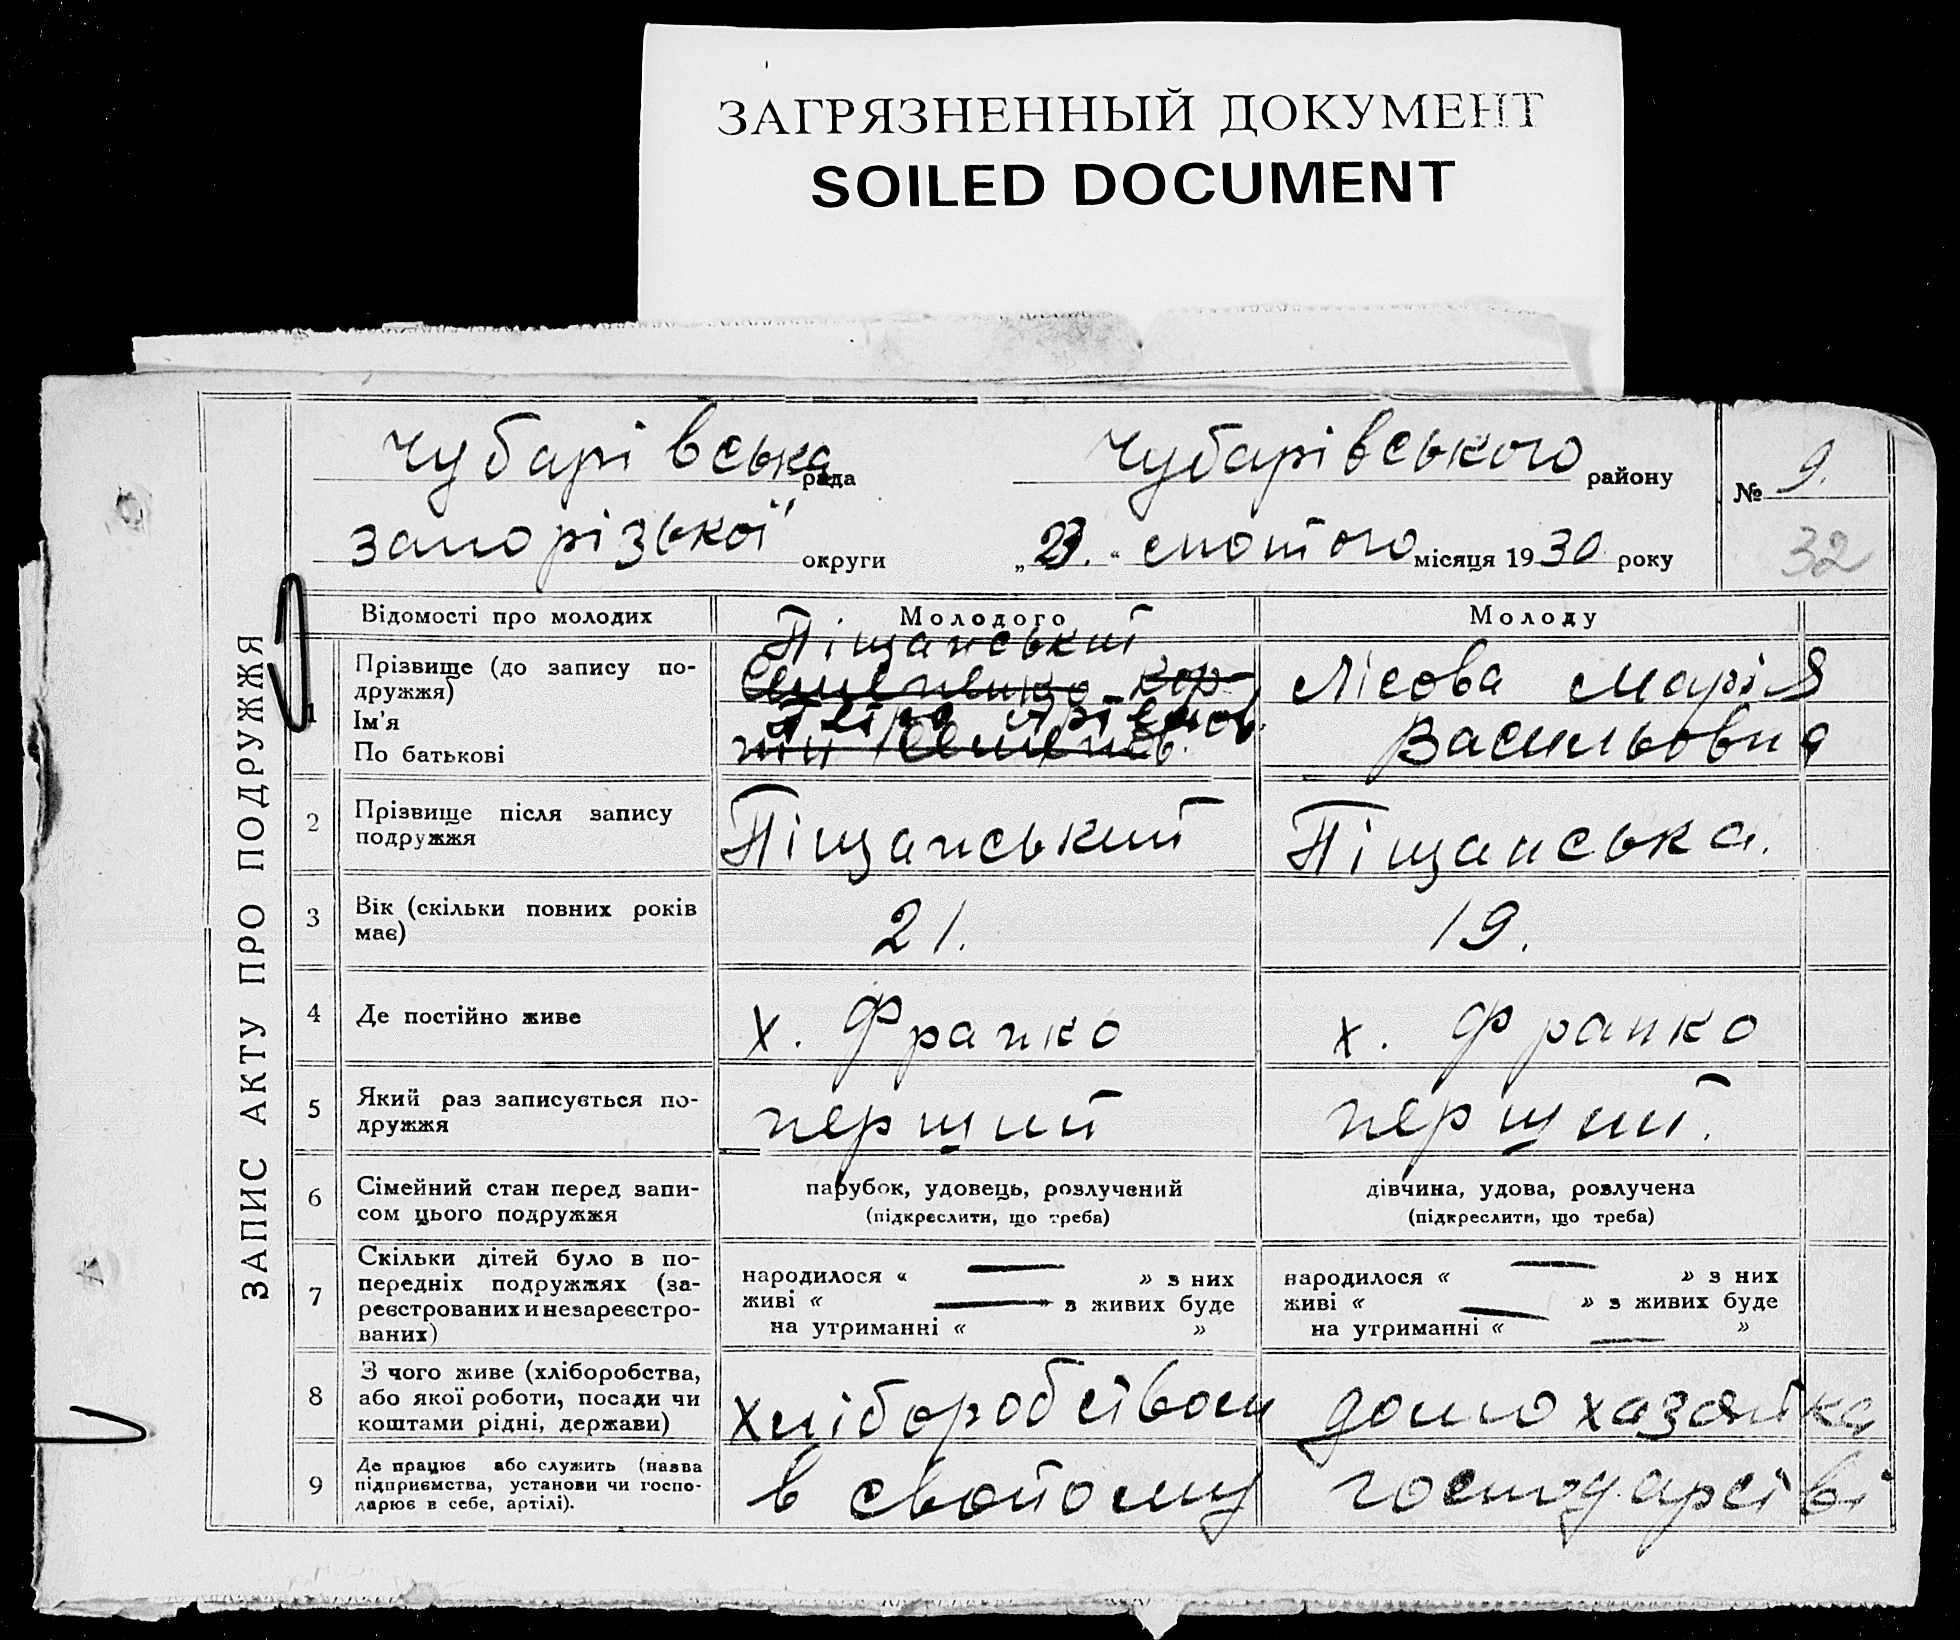 ЗАГРЯЗНЕННЫЙ ДОКУМЕНТ
SOILED DOCUMENT
ЗАПИС АКТУ ПРО ПОДРУЖЖЯ
Чубарівська рада Чубарівського району № 9.
Запорізької округи „23.“ лютого місяця 1930 року
32
Відомості про молодих Молодого Молоду
Піщанський
1 Прізвище (до запису по- Семененко Кор- Лісова Марія
дружжя)
Ім’я
По батькові ній Семенов. Васильовна
2 Прізвище після запису
подружжя Піщанський Піщанська.
3 Вік (скільки повних років
має) 21. 19.
4 Де постійно живе х. Франко х. Франко
5 Який раз записується по-
дружжя перший перший.
6 Сімейний стан перед запи- парубок, удовець, розлучений дівчина, удова, розлучена
сом цього подружжя (підкреслити, що треба) (підкреслити, що треба)
7 Скільки дітей було в по-
передніх подружжях (за- народилося « — » з них народилося « — » з них
реєстрованих и незареєстро- живі « — » з живих буде живі « — » з живих буде
ваних) на утриманні « » на утриманні « — »
8 З чого живе (хліборобства,
або якої роботи, посади чи хліборобством домохазяйка
коштами рідні, держави)
9 Де працює або служить (назва
підприємства, установи чи госпо- в свойому господарстві
дарює в себе, артілі).